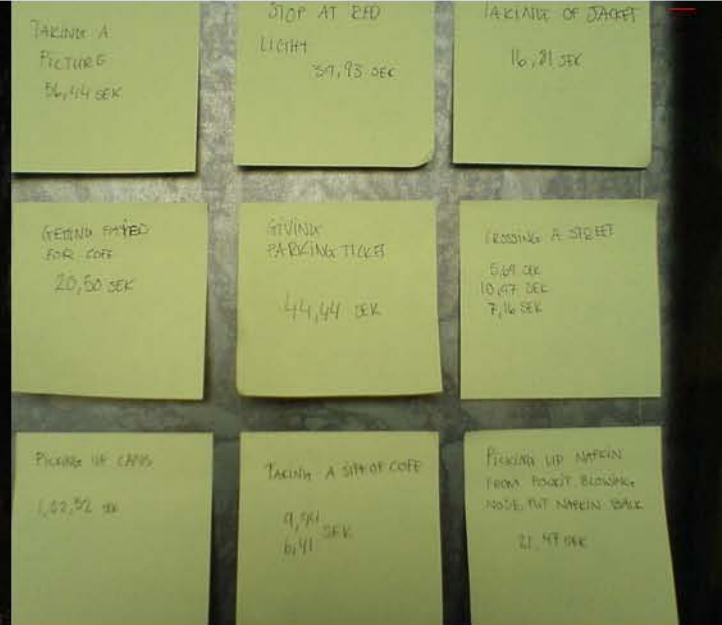 TAKING A
PICTURE
56,44 SEK
STOP AT RED
LIGHT
37,93 SEK
TAKING OF JACKET
16,81 SEK
GETING PAYED
FOR COFE
20,50 SEK
GIVING
PARKING TICKET
44,44 SEK
CROSSING A STREET
5,69 SEK
10,97 SEK
7,16 SEK
PICKING UP CANS
1,22,32 SEK
TAKING A SIP OF COFE
SEK
6,41
PICKING UP NAPKIN
FROM POCKIT, BLOWING
NOSE, PUT NAPKIN BACK
21,47 SEK